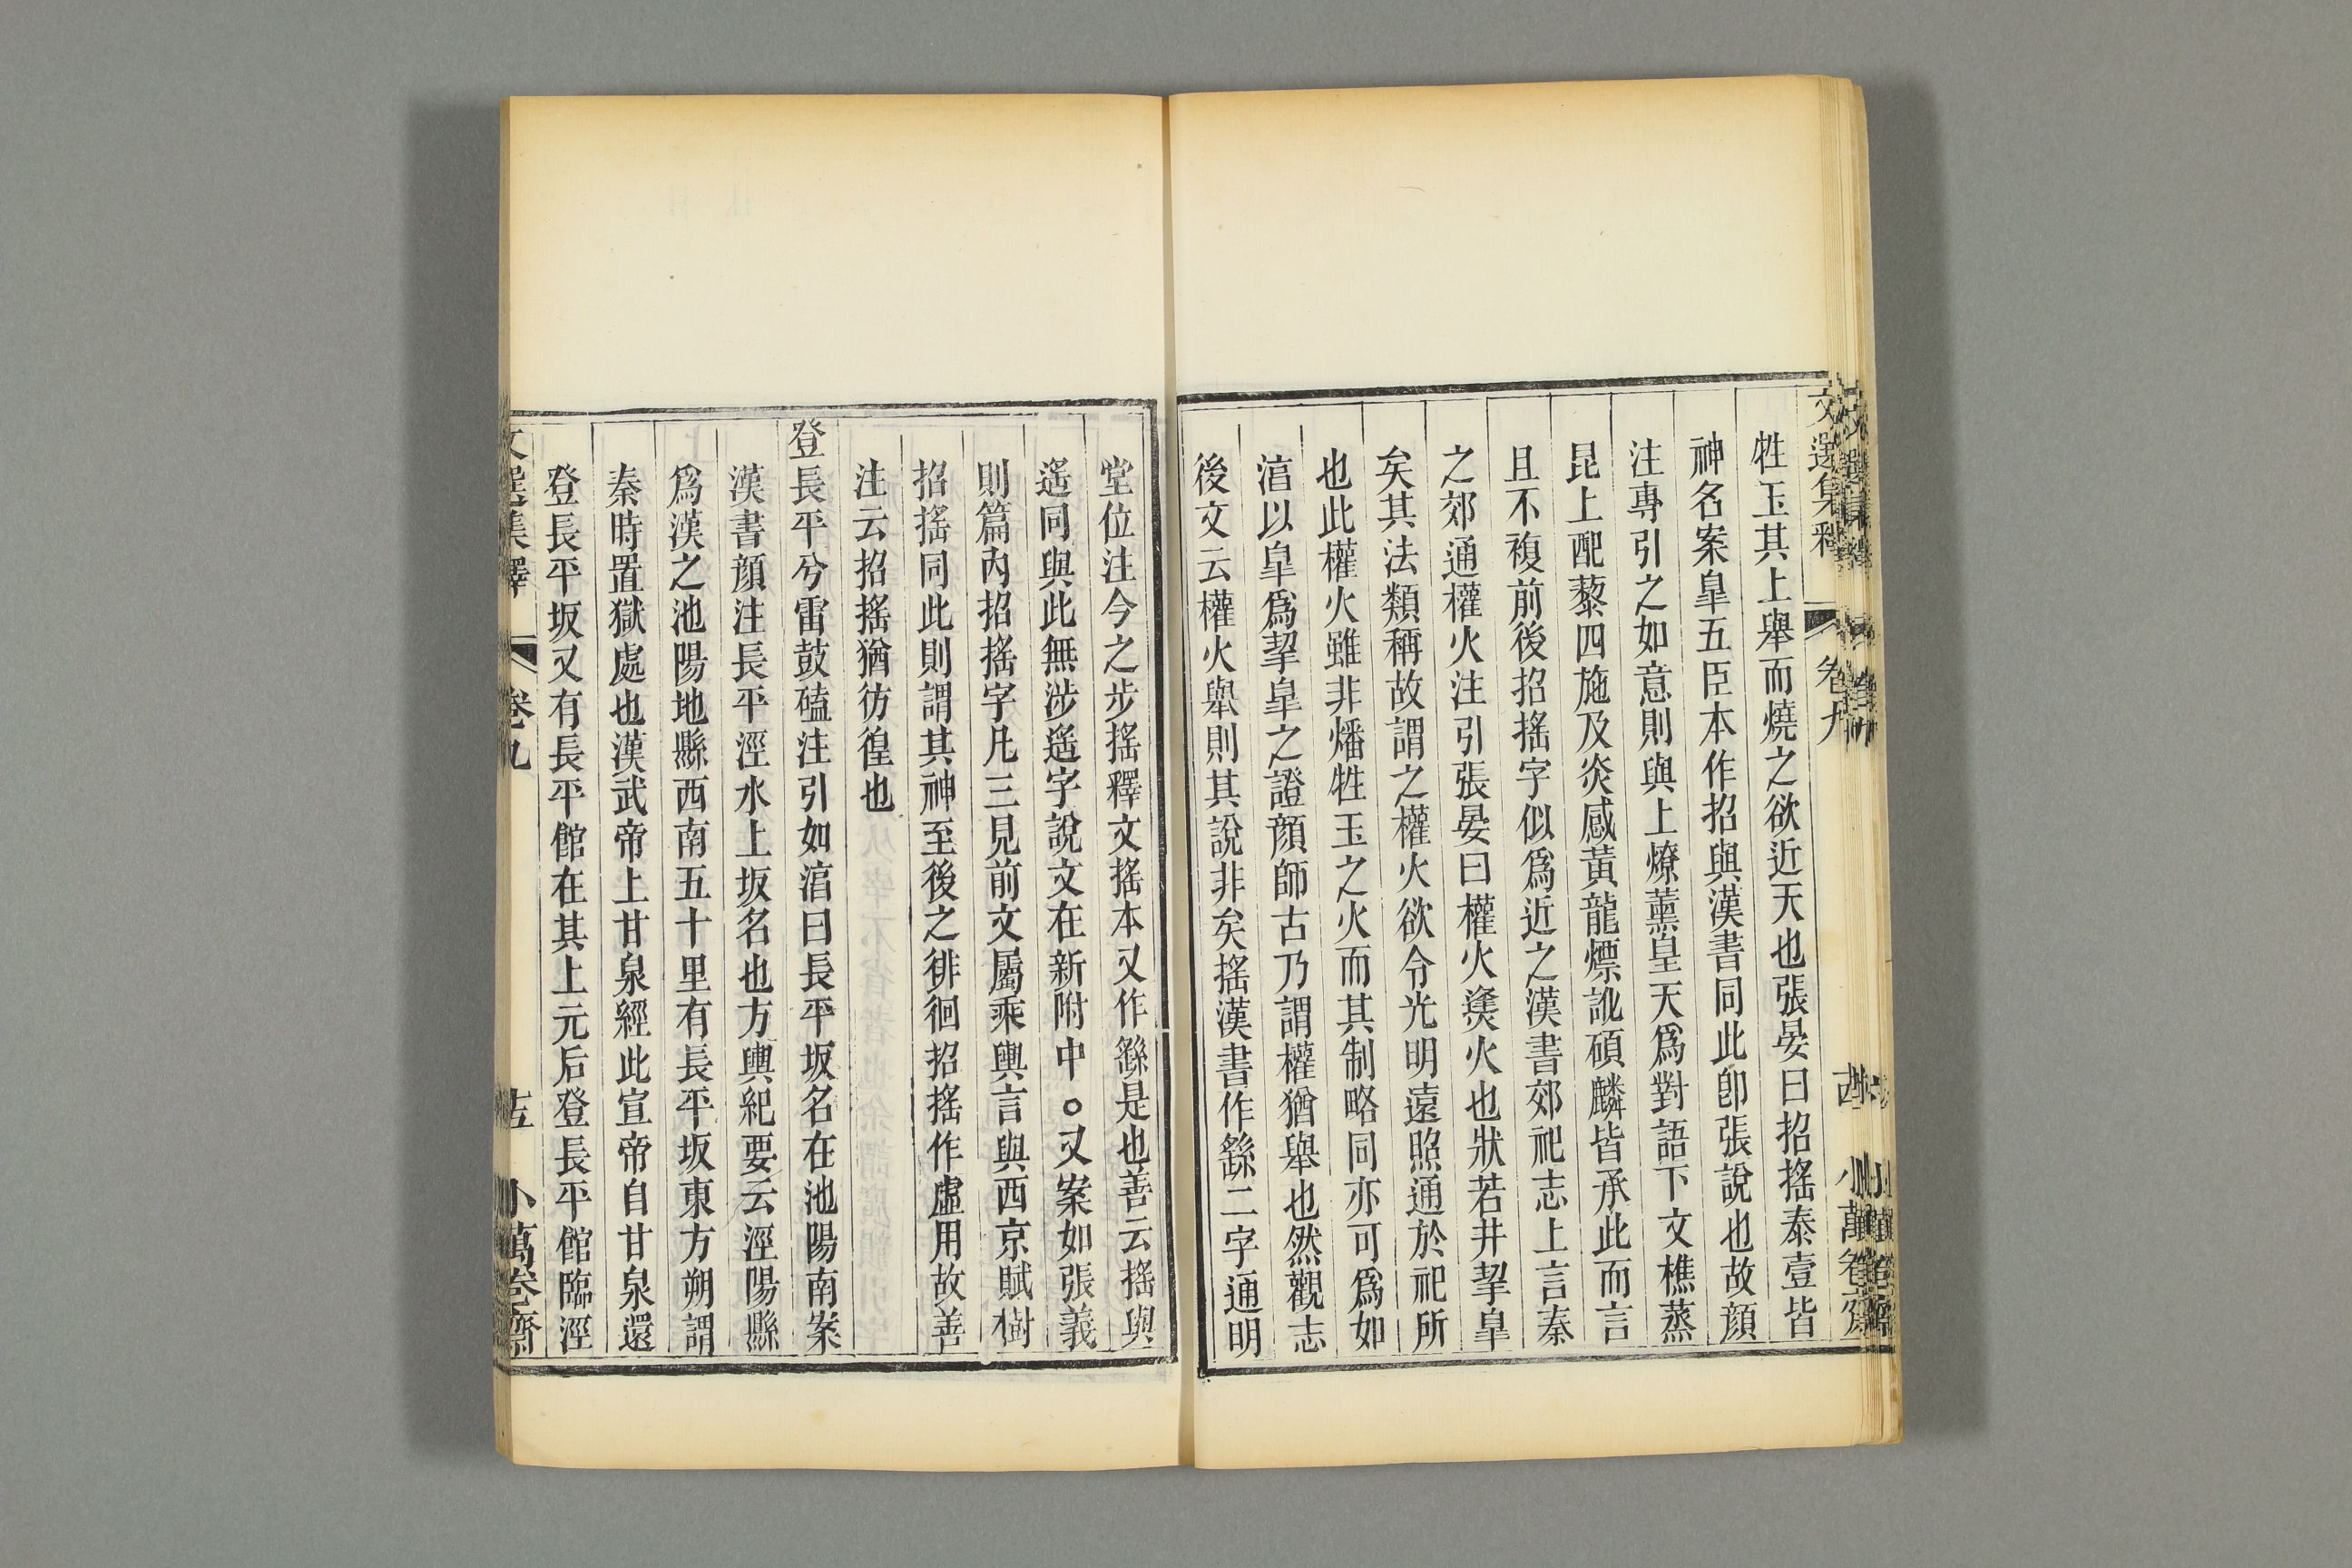 文選集釋 卷九 小萬卷齋
牲玉其上舉而燒之欲近天也張晏曰招搖泰壹皆
神名案皐五臣本作招與漢書同此卽張說也故顔
注專引之如意則與上燎薰皇天爲對語下文樵蒸
昆上配藜四施及炎感黃龍熛訛碩麟皆承此而言
且不複前後招搖字似爲近之漢書郊祀志上言秦
之郊通權火注引張晏曰權火㷭火也狀若井挈皐
矣其法類稱故謂之權火欲令光明遠照通於祀所
也此權火雖非燔牲玉之火而其制略同亦可爲如
淳以皐爲挈皐之證顔師古乃謂權猶舉也然觀志
後文云權火舉則其說非矣搖漢書作繇二字通明
堂位注今之步搖釋文搖本又作繇是也善云搖與
遙同與此無涉遙字說文在新附中○又案如張義
則篇內招搖字凡三見前文屬乘輿言與西京賦樹
招搖同此則謂其神至後之徘徊招搖作虛用故善
注云招搖猶彷徨也
登長平兮雷鼓磕注引如淳曰長平坂名在池陽南案
漢書顔注長平涇水上坂名也方輿紀要云涇陽縣
爲漢之池陽地縣西南五十里有長平坂東方朔謂
秦時置獄處也漢武帝上甘泉經此宣帝自甘泉還
登長平坂又有長平館在其上元后登長平館臨涇
文選集釋 卷九 小萬卷齋